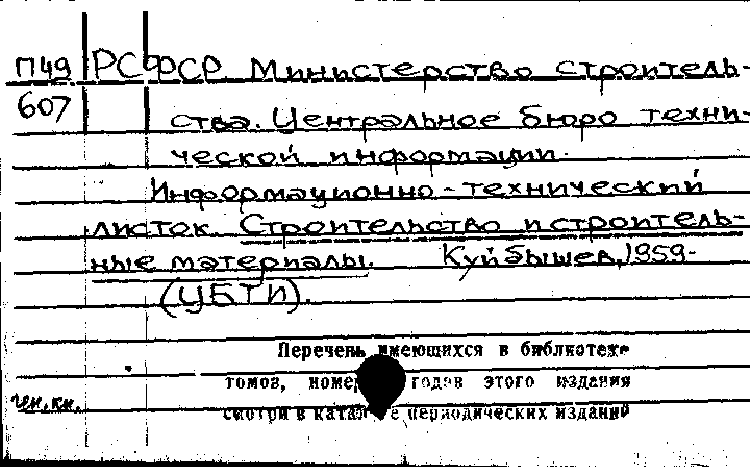 П49 РСФСР. Министерство строитель-
607 ства. Центральное бюро техни-
ческой информации.
Информационно-технический
листок. Строительство и строитель-
ные материалы. Куйбышев, 1959-
(ЦБТИ).
Перечень имеющихся в библиотеке
томов, номе годов этого издания
ген.кн.
смотри в катал е периодических изданий